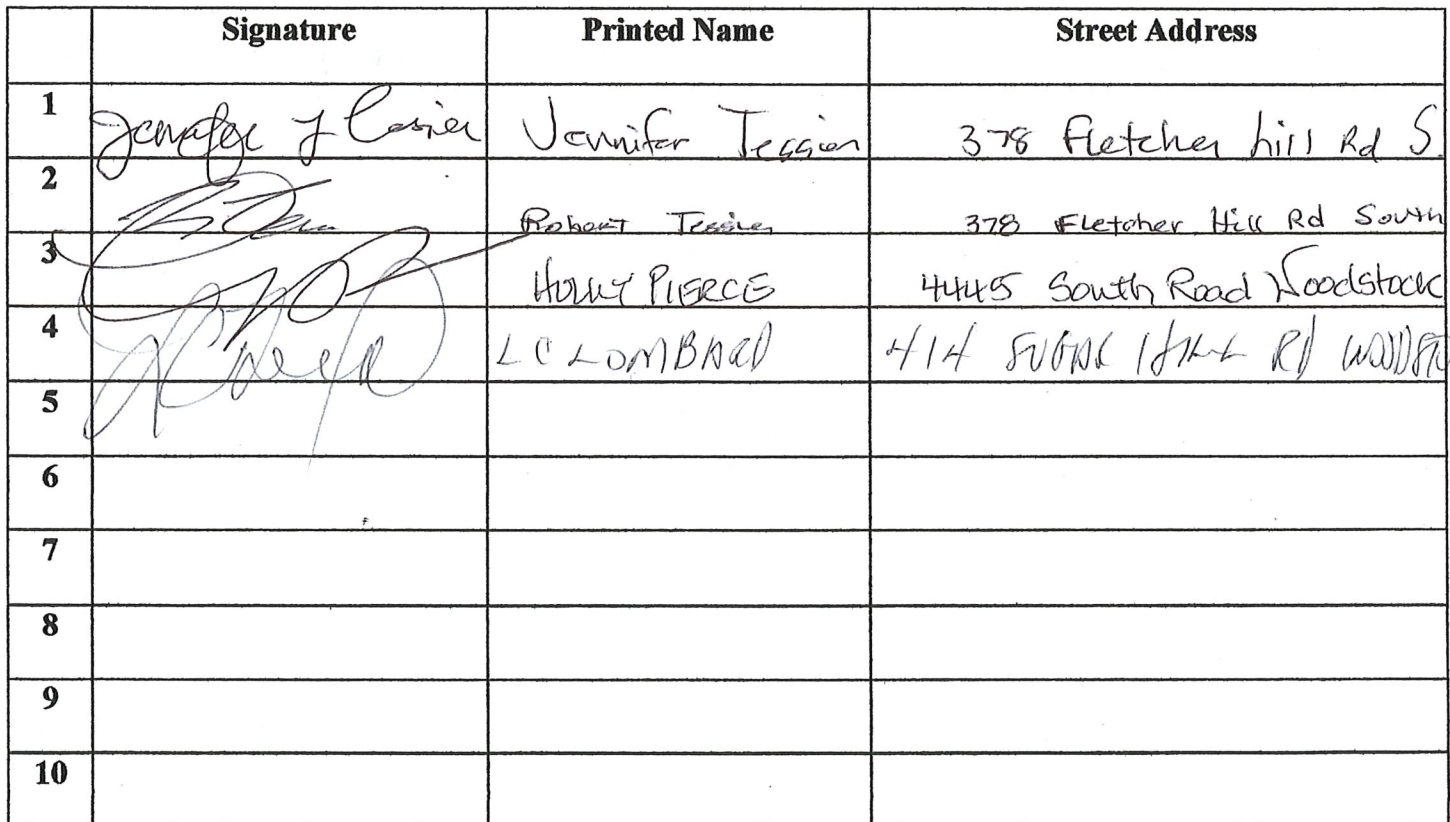 Signature Printed Name Street Address
1 Jennifer Tessier Jennifer Tessier 378 Fletcher hill Rd S.
2 Robert Tessier 378 Fletcher Hill Rd South
3 HOLLY PIERCE 4445 South Road Woodstock
4 LC LOMBARD 414 RD
5
6
7
8
9
10